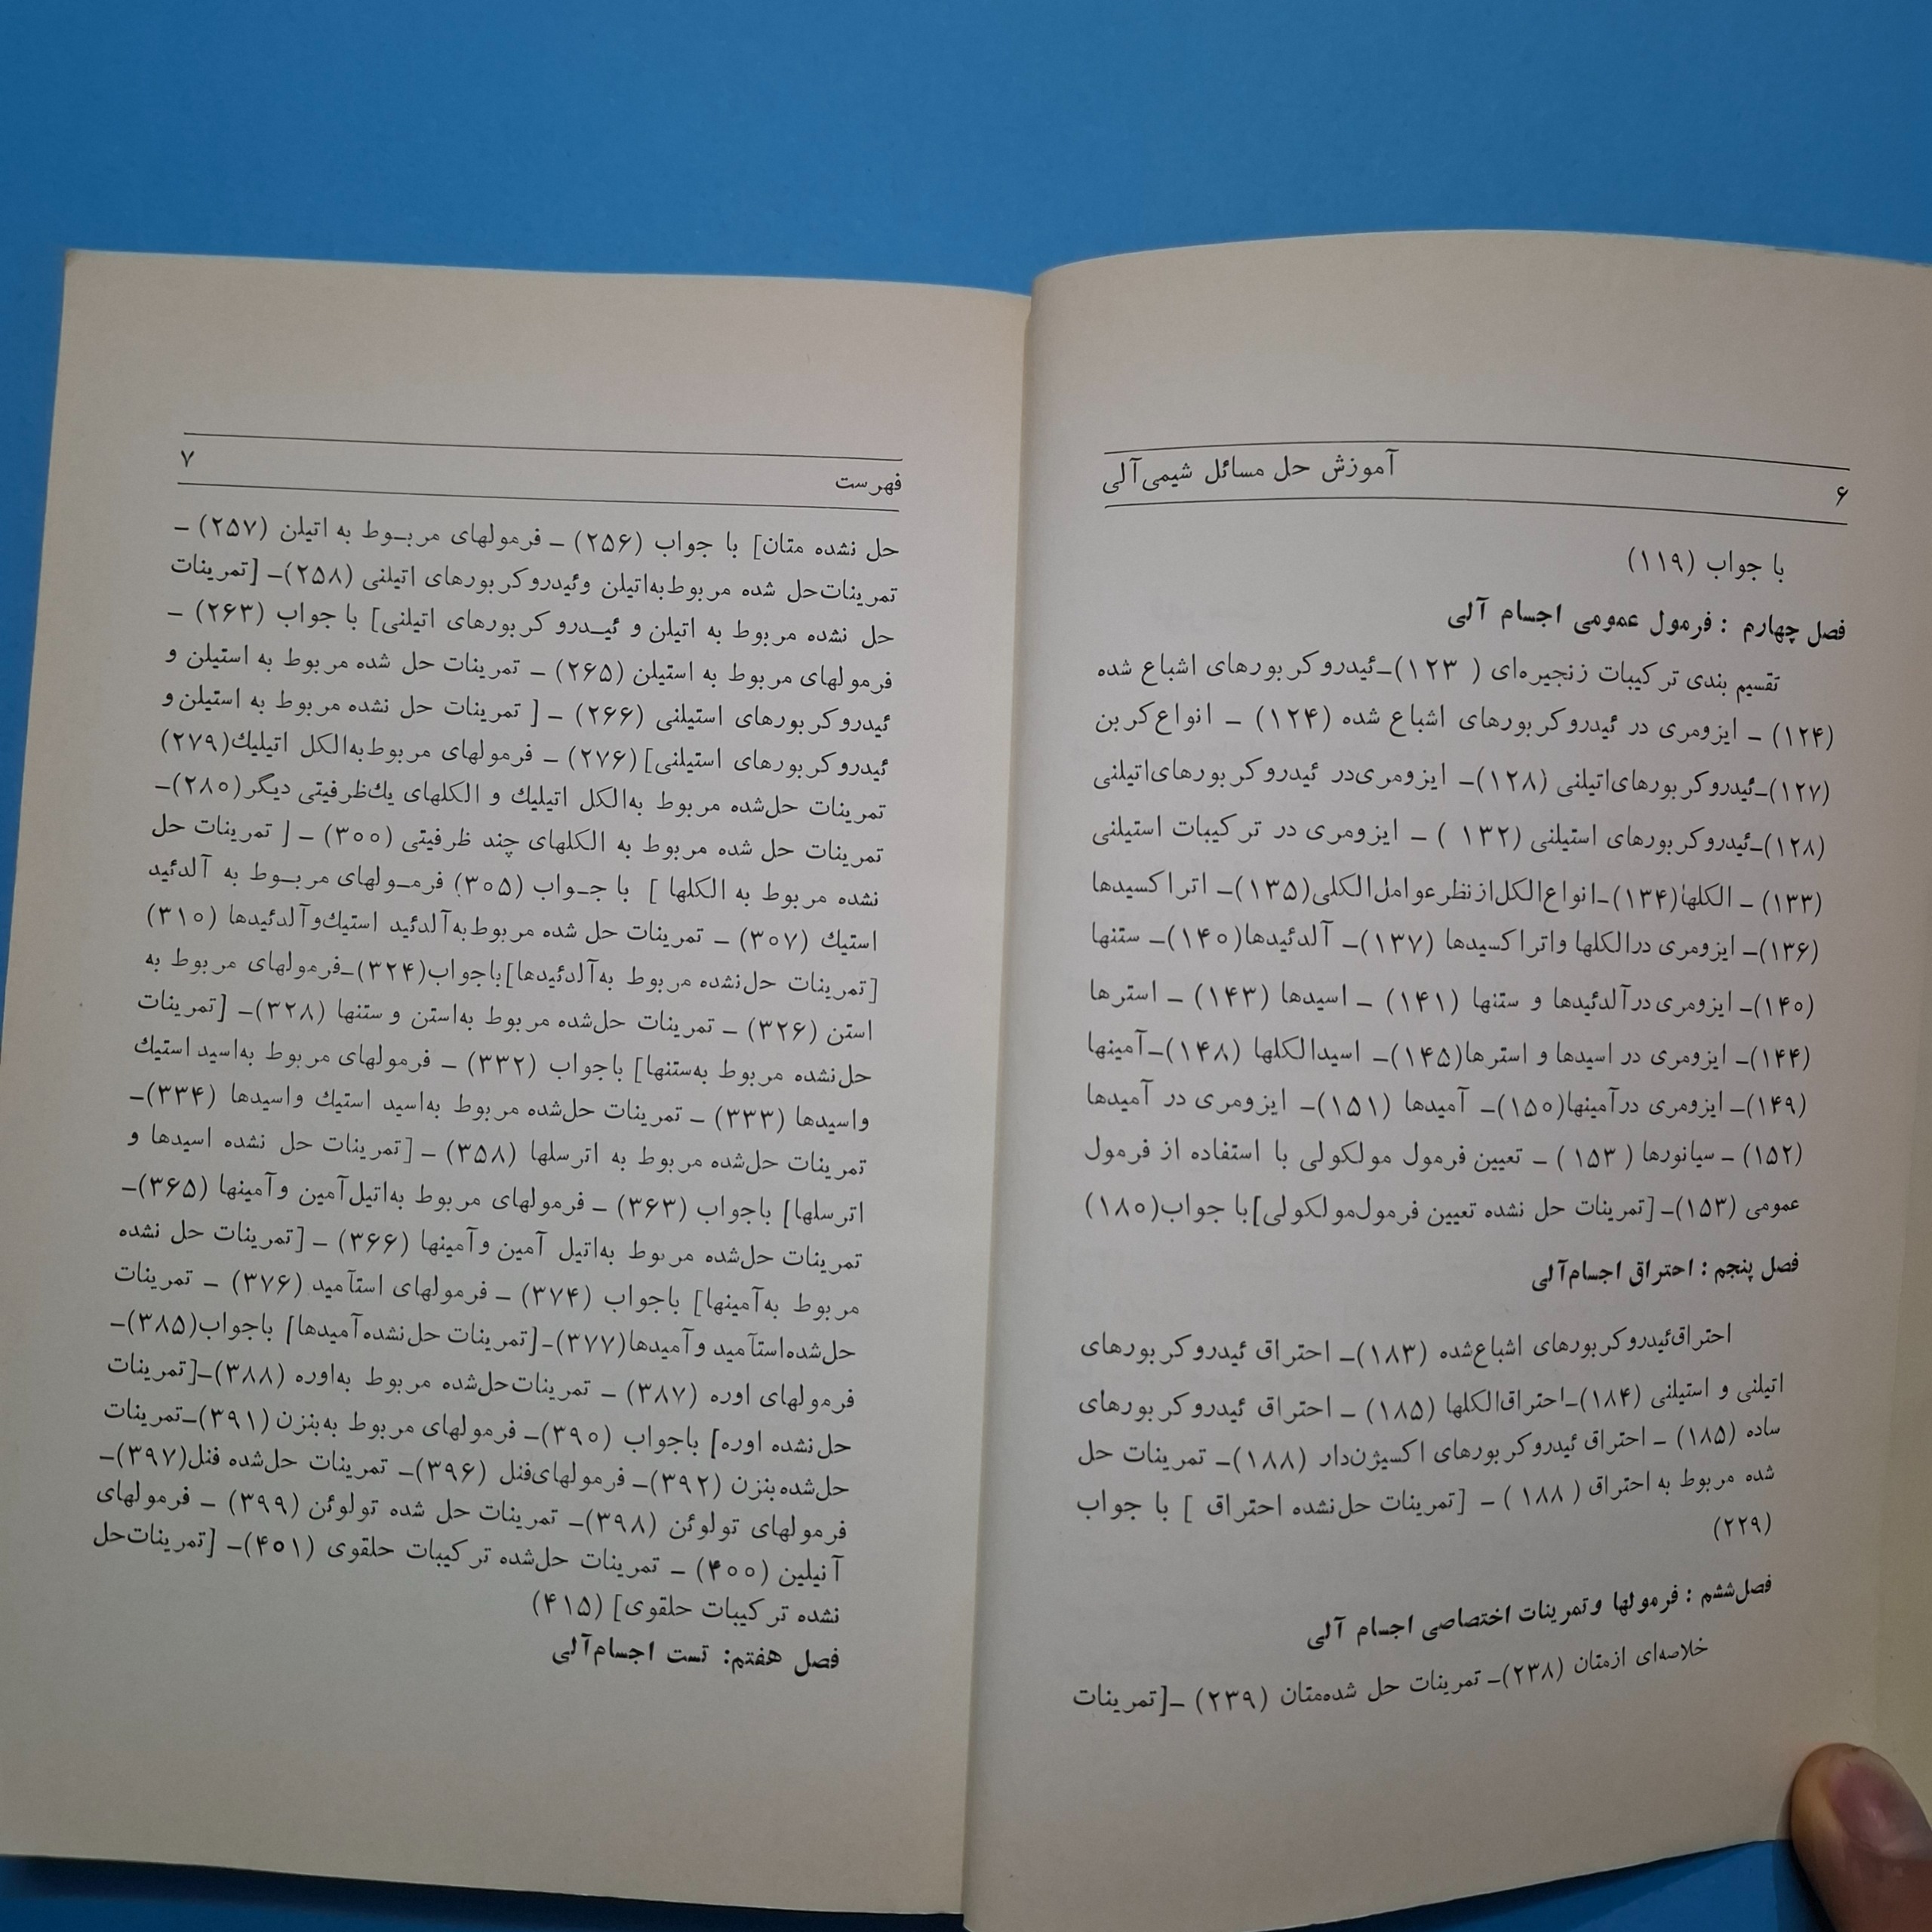 ۶
آموزش حل مسائل شیمی‌آلی
با جواب (۱۱۹)
فصل چهارم : فرمول عمومی اجسام آلی
تقسیم بندی ترکیبات زنجیره‌ای ( ۱۲۳)ـ ئیدروکربورهای اشباع شده
(۱۲۴) ـ ایزومری در ئیدروکربورهای اشباع شده (۱۲۴) ـ انواع کربن
(۱۲۷)ـ ئیدروکربورهای‌اتیلنی (۱۲۸)ـ ایزومری‌در ئیدروکربورهای‌اتیلنی
(۱۲۸)ـ ئیدروکربورهای استیلنی (۱۳۲ ) ـ ایزومری در ترکیبات استیلنی
(۱۳۳) ـ الکلها(۱۳۴)ـ انواع‌الکل‌ازنظرعوامل‌الکلی(۱۳۵)ـ اتراکسیدها
(۱۳۶)ـ ایزومری درالکلها واتراکسیدها (۱۳۷)ـ آلدئیدها(۱۴۰)ـ ستنها
(۱۴۰)ـ ایزومری درآلدئیدها و ستنها (۱۴۱) ـ اسیدها (۱۴۳) ـ استرها
(۱۴۴)ـ ایزومری در اسیدها و استرها(۱۴۵)ـ اسیدالکلها (۱۴۸)ـ آمینها
(۱۴۹)ـ ایزومری درآمینها(۱۵۰)ـ آمیدها (۱۵۱)ـ ایزومری در آمیدها
(۱۵۲) ـ سیانورها ( ۱۵۳) ـ تعیین فرمول مولکولی با استفاده از فرمول
عمومی (۱۵۳)ـ [تمرینات حل نشده تعیین فرمول‌مولکولی]با جواب(۱۸۰)
فصل پنجم : احتراق اجسام‌آلی
احتراق‌ئیدروکربورهای اشباع‌شده (۱۸۳)ـ احتراق ئیدروکربورهای
اتیلنی و استیلنی (۱۸۴)ـ احتراق‌الکلها (۱۸۵) ـ احتراق ئیدروکربورهای
ساده (۱۸۵) ـ احتراق ئیدروکربورهای اکسیژن‌دار (۱۸۸)ـ تمرینات حل
شده مربوط به احتراق ( ۱۸۸) ـ [تمرینات حل‌نشده احتراق ] با جواب
(۲۲۹)
فصل‌ششم : فرمولها وتمرینات اختصاصی اجسام آلی
خلاصه‌ای ازمتان (۲۳۸)ـ تمرینات حل شده‌متان (۲۳۹) ـ[تمرینات
فهرست
۷
حل نشده متان] با جواب (۲۵۶) ـ فرمولهای مربوط به اتیلن (۲۵۷) ـ
تمرینات‌حل شده مربوط‌به‌اتیلن وئیدروکربورهای اتیلنی (۲۵۸)ـ [تمرینات
حل نشده مربوط به اتیلن و ئیدروکربورهای اتیلنی] با جواب (۲۶۳) ـ
فرمولهای مربوط به استیلن (۲۶۵) ـ تمرینات حل شده مربوط به استیلن و
ئیدروکربورهای استیلنی (۲۶۶) ـ [ تمرینات حل نشده مربوط به استیلن و
ئیدروکربورهای استیلنی] (۲۷۶) ـ فرمولهای مربوط‌به‌الکل اتیلیك(۲۷۹)
تمرینات حل‌شده مربوط به‌الکل اتیلیك و الکلهای یك‌ظرفیتی دیگر(۲۸۰)ـ
تمرینات حل شده مربوط به الکلهای چند ظرفیتی (۳۰۰) ـ [ تمرینات حل
نشده مربوط به الکلها ] با جواب (۳۰۵) فرمولهای مربوط به آلدئید
استیك (۳۰۷) ـ تمرینات حل شده مربوط‌به‌آلدئید استیك‌وآلدئیدها (۳۱۰)
[تمرینات حل‌نشده مربوط به‌آلدئیدها]باجواب(۳۲۴)ـفرمولهای مربوط به
استن (۳۲۶) ـ تمرینات حل‌شده مربوط به‌استن و ستنها (۳۲۸)ـ [تمرینات
حل‌نشده مربوط به‌ستنها] باجواب (۳۳۲) ـ فرمولهای مربوط به‌اسید استیك
واسیدها (۳۳۳) ـ تمرینات حل‌شده مربوط به‌اسید استیك واسیدها (۳۳۴)ـ
تمرینات حل‌شده مربوط به اترسلها (۳۵۸) ـ [تمرینات حل نشده اسیدها و
اترسلها] باجواب (۳۶۳) ـ فرمولهای مربوط به‌اتیل‌آمین وآمینها (۳۶۵)ـ
تمرینات حل‌شده مربوط به‌اتیل آمین وآمینها (۳۶۶) ـ [تمرینات حل نشده
مربوط به‌آمینها] باجواب (۳۷۴) ـ فرمولهای استآمید (۳۷۶) ـ تمرینات
حل‌شده‌استآمید وآمیدها(۳۷۷)ـ[تمرینات حل‌نشده‌آمیدها] باجواب(۳۸۵)ـ
فرمولهای اوره (۳۸۷) ـ تمرینات‌حل‌شده مربوط به‌اوره (۳۸۸)ـ[تمرینات
حل‌نشده اوره] باجواب (۳۹۰)ـ فرمولهای مربوط به‌بنزن (۳۹۱)ـتمرینات
حل‌شده‌بنزن (۳۹۲)ـ فرمولهای‌فنل (۳۹۶)ـ تمرینات حل‌شده فنل(۳۹۷)ـ
فرمولهای تولوئن (۳۹۸)ـ تمرینات حل شده تولوئن (۳۹۹) ـ فرمولهای
آنیلین (۴۰۰) ـ تمرینات حل‌شده ترکیبات حلقوی (۴۰۱)ـ [تمرینات‌حل
نشده ترکیبات حلقوی] (۴۱۵)
فصل هفتم: تست اجسام‌آلی